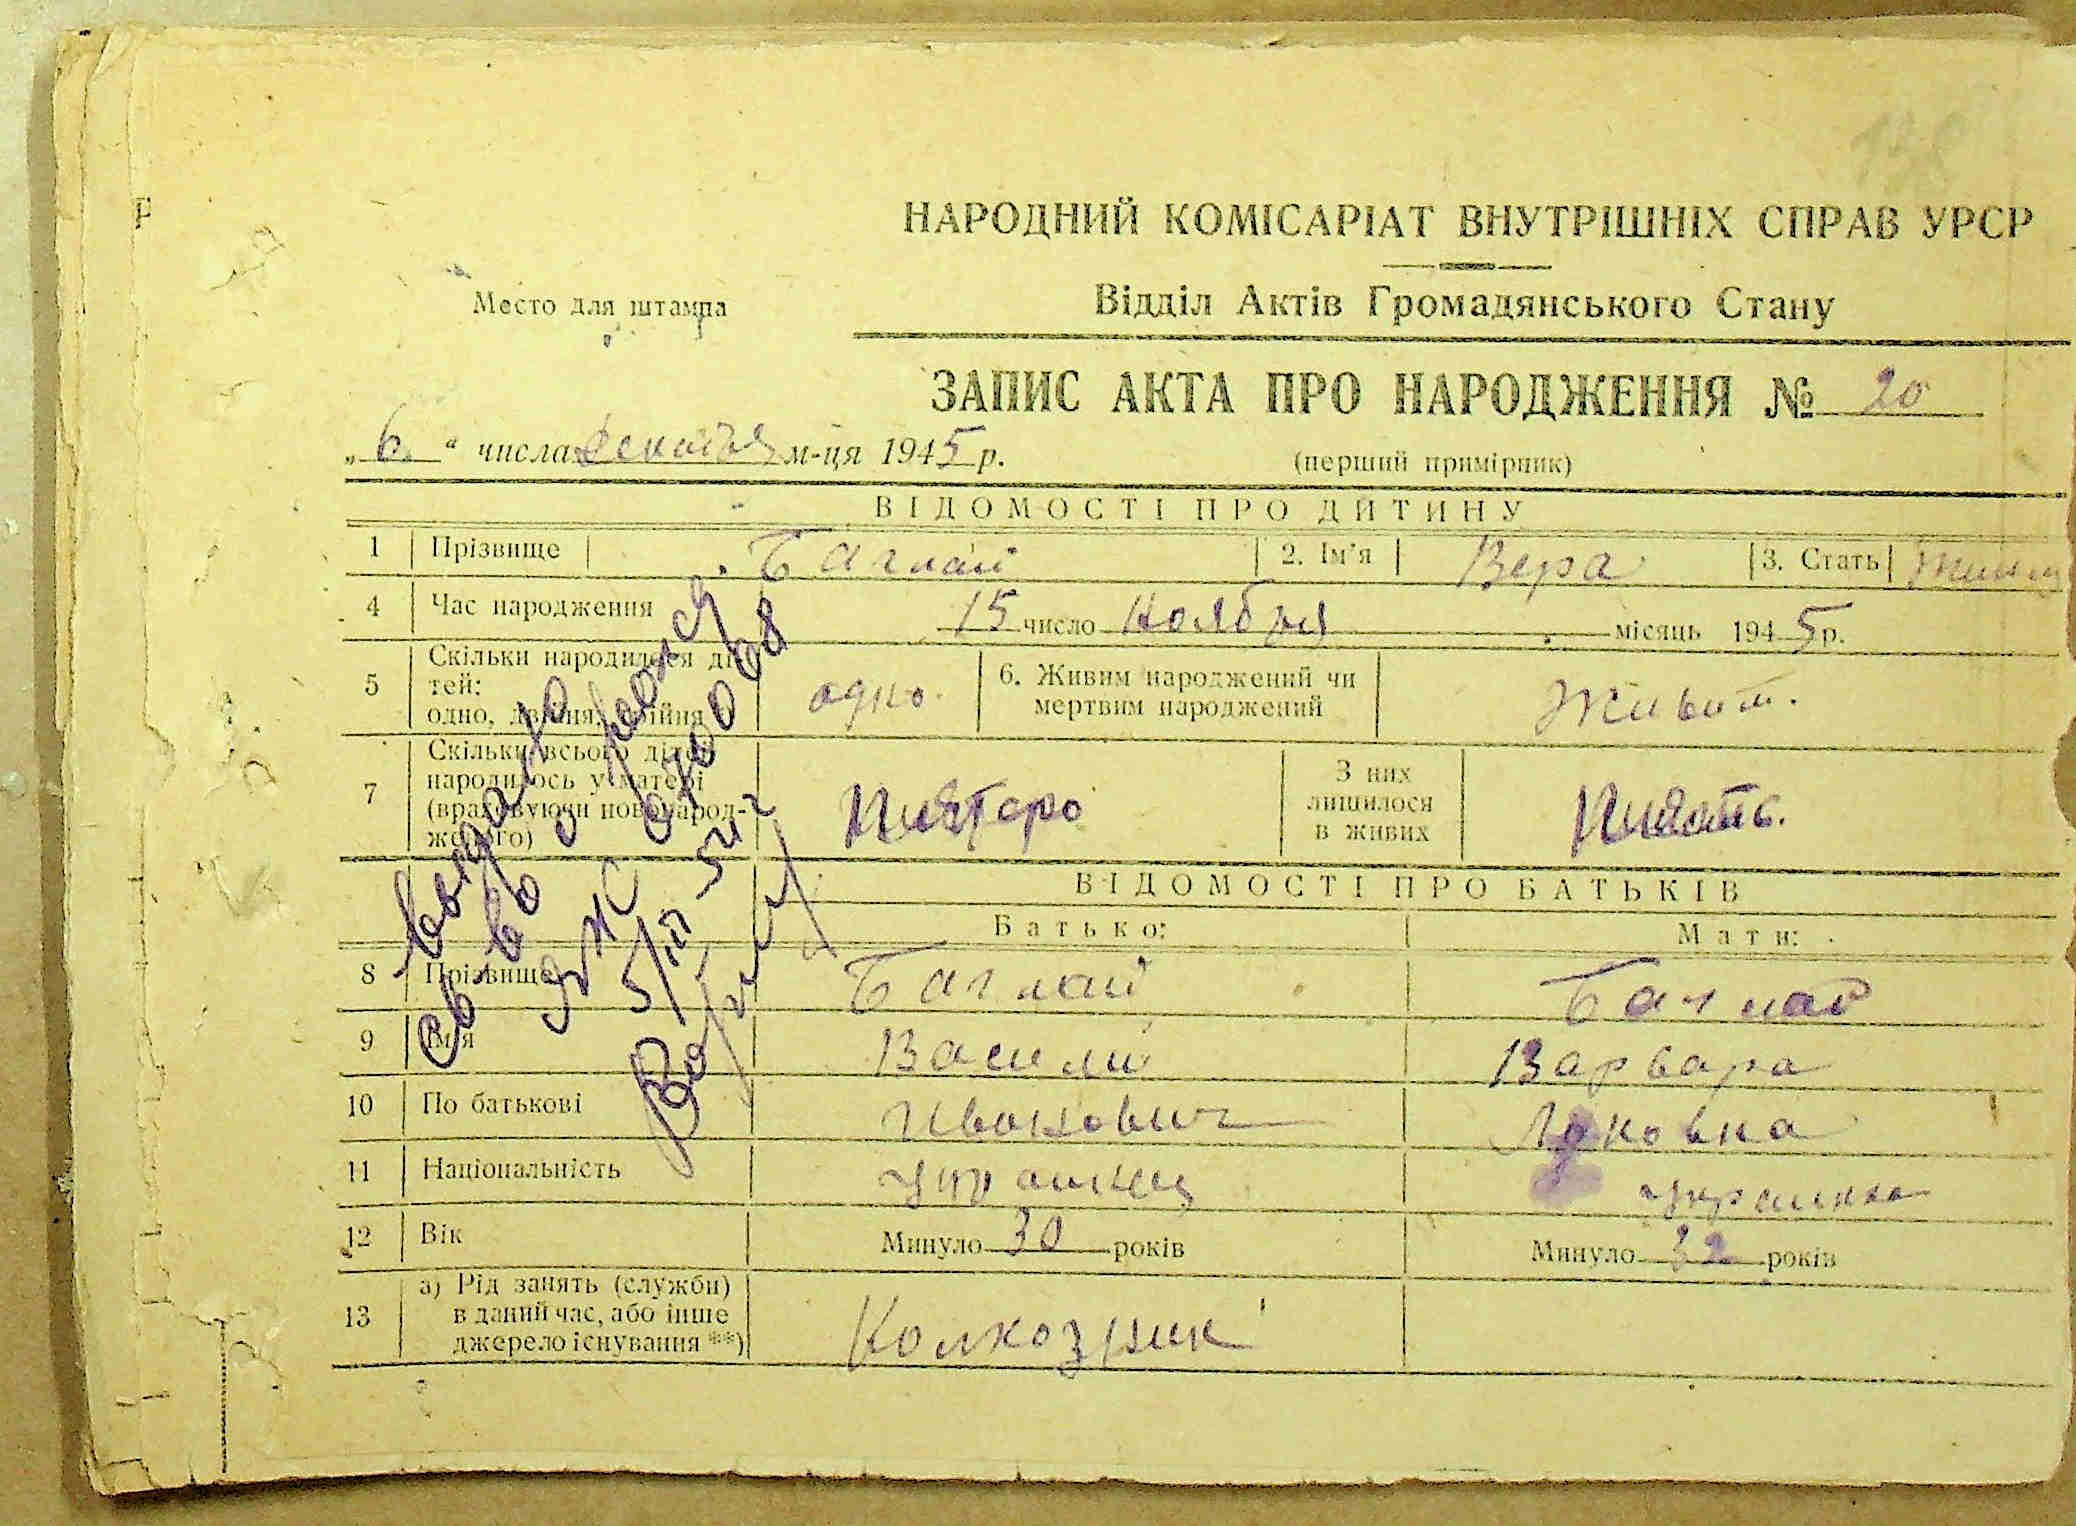 138
НАРОДНИЙ КОМІСАРІАТ ВНУТРІШНІХ СПРАВ УРСР
Место для штампа
Відділ Актів Громадянського Стану
ЗАПИС АКТА ПРО НАРОДЖЕННЯ № 20
„6“ числа декабря м-ця 1945 р.
(перший примірник)
ВІДОМОСТІ ПРО ДИТИНУ
1 Прізвище Баглай 2. Ім'я Вера 3. Стать
4 Час народження 15 число ноября місяць 1945 р.
5 Скільки народилося ді-
тей:
одно, двійня, трійня
одно. 6. Живим народжений чи
мертвим народжений
Живим.
7 Скільки всього дітей
народилось у матері
(враховуючи новонарод-
женого)
Пиятеро
З них
лишилося
в живих
Пиять.
ВІДОМОСТІ ПРО БАТЬКІВ
Батько: Мати:
8 Прізвище Баглай Баглай
9 Ім'я Василий Варвара
10 По батькові Иванович Луковна
11 Національність украинец украинка
12 Вік Минуло 30 років Минуло 32 років
13 а) Рід занять (служби)
в даний час, або інше
джерело існування **)
Колхозник
выдано повторное
св во о рожд